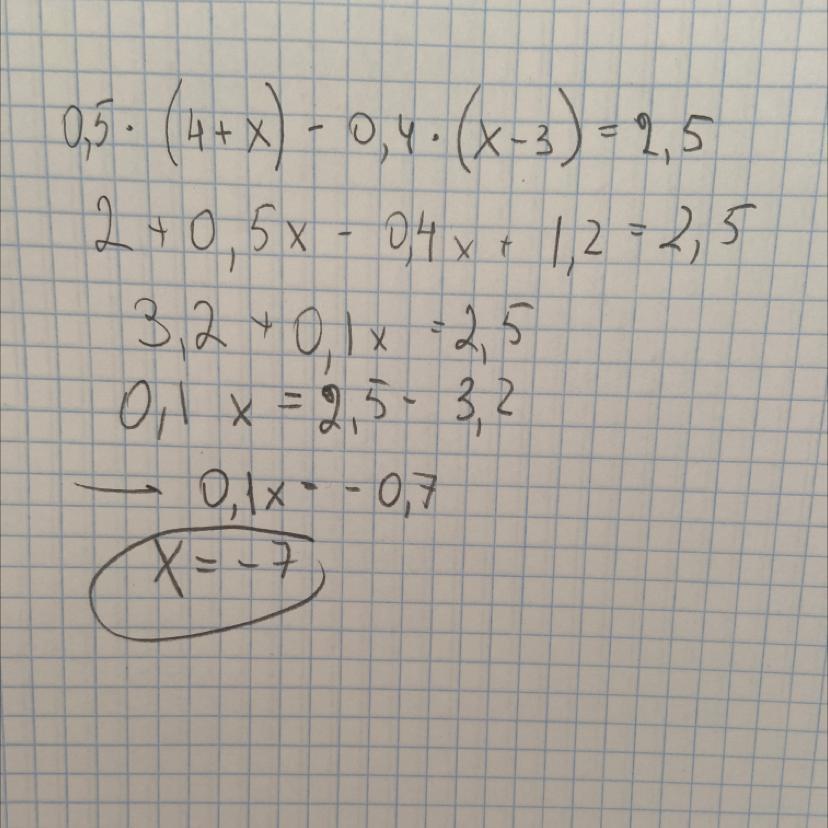 0,5 · (4 + x) - 0,4 · (x - 3) = 2,5
2 + 0,5x - 0,4x + 1,2 = 2,5
3,2 + 0,1x = 2,5
0,1x = 2,5 - 3,2
→ 0,1x = -0,7
x = -7